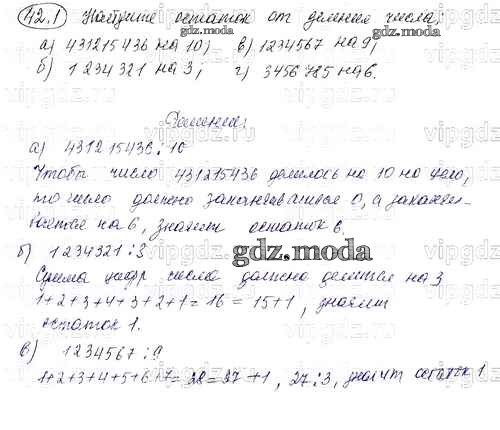 42.1 Найдите остаток от деления числа:
а) 431215436 на 10; в) 1234567 на 9;
б) 1234321 на 3; г) 3456785 на 6.
Решение:
а) 431215436 : 10
Чтобы число 431215436 делилось на 10 на цело,
то число должно заканчиваться 0, а заканчи-
вается на 6, значит остаток 6.
б) 1234321 : 3
Сумма цифр числа должна делится на 3
1+2+3+4+3+2+1=16=15+1, значит
остаток 1.
в) 1234567 : 9
1+2+3+4+5+6+7=28=27+1, 27:3, значит остаток 1
gdz.moda
gdz.moda
gdz.moda
gdz.moda